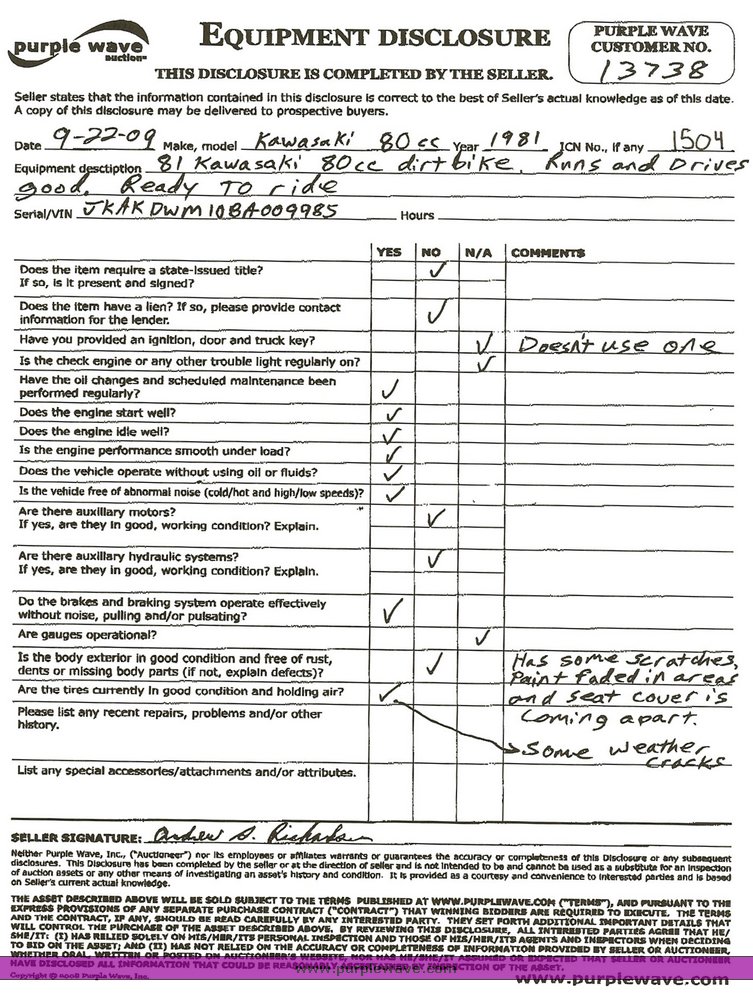 purple wave
auction
EQUIPMENT DISCLOSURE
THIS DISCLOSURE IS COMPLETED BY THE SELLER.
PURPLE WAVE
CUSTOMER NO.
13738
Seller states that the information contained in this disclosure is correct to the best of Seller's actual knowledge as of this date.
A copy of this disclosure may be delivered to prospective buyers.
Date 9-22-09 Make, model Kawasaki 80cc Year 1981 ICN No., if any 1504
Equipment desctiption 81 Kawasaki 80cc dirtbike. Runs and Drives
good. Ready To ride
Serial/VIN JKAKDWM10BA009985 Hours
YES NO N/A COMMENTS
Does the item require a state-issued title? ✓
If so, is it present and signed?
Does the item have a lien? If so, please provide contact
information for the lender. ✓
Have you provided an ignition, door and truck key? ✓ Doesn't use one
Is the check engine or any other trouble light regularly on? ✓
Have the oil changes and scheduled maintenance been
performed regularly? ✓
Does the engine start well? ✓
Does the engine idle well? ✓
Is the engine performance smooth under load? ✓
Does the vehicle operate without using oil or fluids? ✓
Is the vehicle free of abnormal noise (cold/hot and high/low speeds)? ✓
Are there auxiliary motors?
If yes, are they in good, working condition? Explain. ✓
Are there auxiliary hydraulic systems?
If yes, are they in good, working condition? Explain. ✓
Do the brakes and braking system operate effectively
without noise, pulling and/or pulsating? ✓
Are gauges operational? ✓
Is the body exterior in good condition and free of rust, Has some scratches,
dents or missing body parts (if not, explain defects)? ✓ Paint faded in areas
Are the tires currently in good condition and holding air? ✓ and seat cover is
Please list any recent repairs, problems and/or other coming apart.
history.
Some weather
cracks
List any special accessories/attachments and/or attributes.
SELLER SIGNATURE: Andrew S. Richardson
Neither Purple Wave, Inc., ("Auctioneer") nor its employees or affiliates warrants or guarantees the accuracy or completeness of this Disclosure or any subsequent
disclosures. This Disclosure has been completed by the seller or at the direction of seller and is not intended to be and cannot be used as a substitute for an inspection
of auction assets or any other means of investigating an asset's history and condition. It is provided as a courtesy and convenience to interested parties and is based
on Seller's current actual knowledge.
THE ASSET DESCRIBED ABOVE WILL BE SOLD SUBJECT TO THE TERMS PUBLISHED AT WWW.PURPLEWAVE.COM ("TERMS"), AND PURSUANT TO THE
EXPRESS PROVISIONS OF ANY SEPARATE PURCHASE CONTRACT ("CONTRACT") THAT WINNING BIDDERS ARE REQUIRED TO EXECUTE. THE TERMS
AND THE CONTRACT, IF ANY, SHOULD BE READ CAREFULLY BY ANY INTERESTED PARTY. THEY SET FORTH ADDITIONAL IMPORTANT DETAILS THAT
WILL CONTROL THE PURCHASE OF THE ASSET DESCRIBED ABOVE. BY REVIEWING THIS DISCLOSURE, ALL INTERESTED PARTIES AGREE THAT HE/
SHE/IT: (I) HAS RELIED SOLELY ON HIS/HER/ITS PERSONAL INSPECTION AND THOSE OF HIS/HER/ITS AGENTS AND INSPECTORS WHEN DECIDING
TO BID ON THE ASSET; AND (II) HAS NOT RELIED ON THE ACCURACY OR COMPLETENESS OF INFORMATION PROVIDED BY SELLER OR AUCTIONEER,
WHETHER ORAL, WRITTEN OR POSTED ON AUCTIONEER'S WEBSITE, NOR HAS HE/SHE/IT ASSUMED OR EXPECTED THAT SELLER OR AUCTIONEER
HAVE DISCLOSED ALL INFORMATION THAT COULD BE REASONABLY ASCERTAINED BY INSPECTION OF THE ASSET.
www.purplewave.com
Copyright © 2008 Purple Wave, Inc.
www.purplewave.com